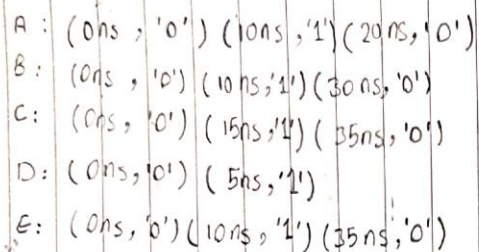 A: (0ns, '0') (10ns, '1') (20ns, '0')
B: (0ns, '0') (10ns, '1') (30ns, '0')
C: (0ns, '0') (15ns, '1') (35ns, '0')
D: (0ns, '0') (5ns, '1')
E: (0ns, '0') (10ns, '1') (35ns, '0')